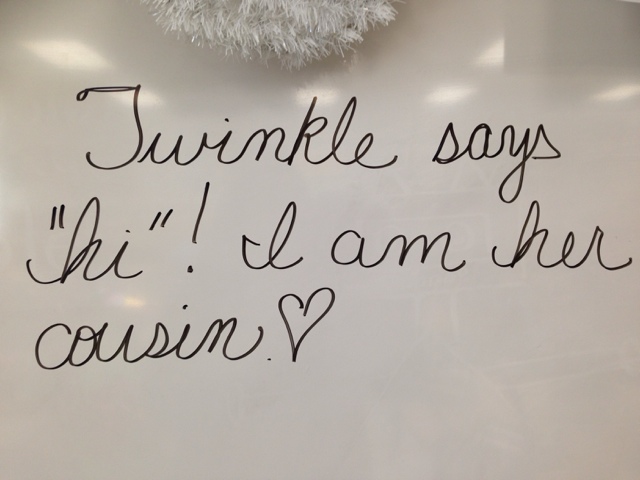 Twinkle says
"hi"! I am her
cousin.♡